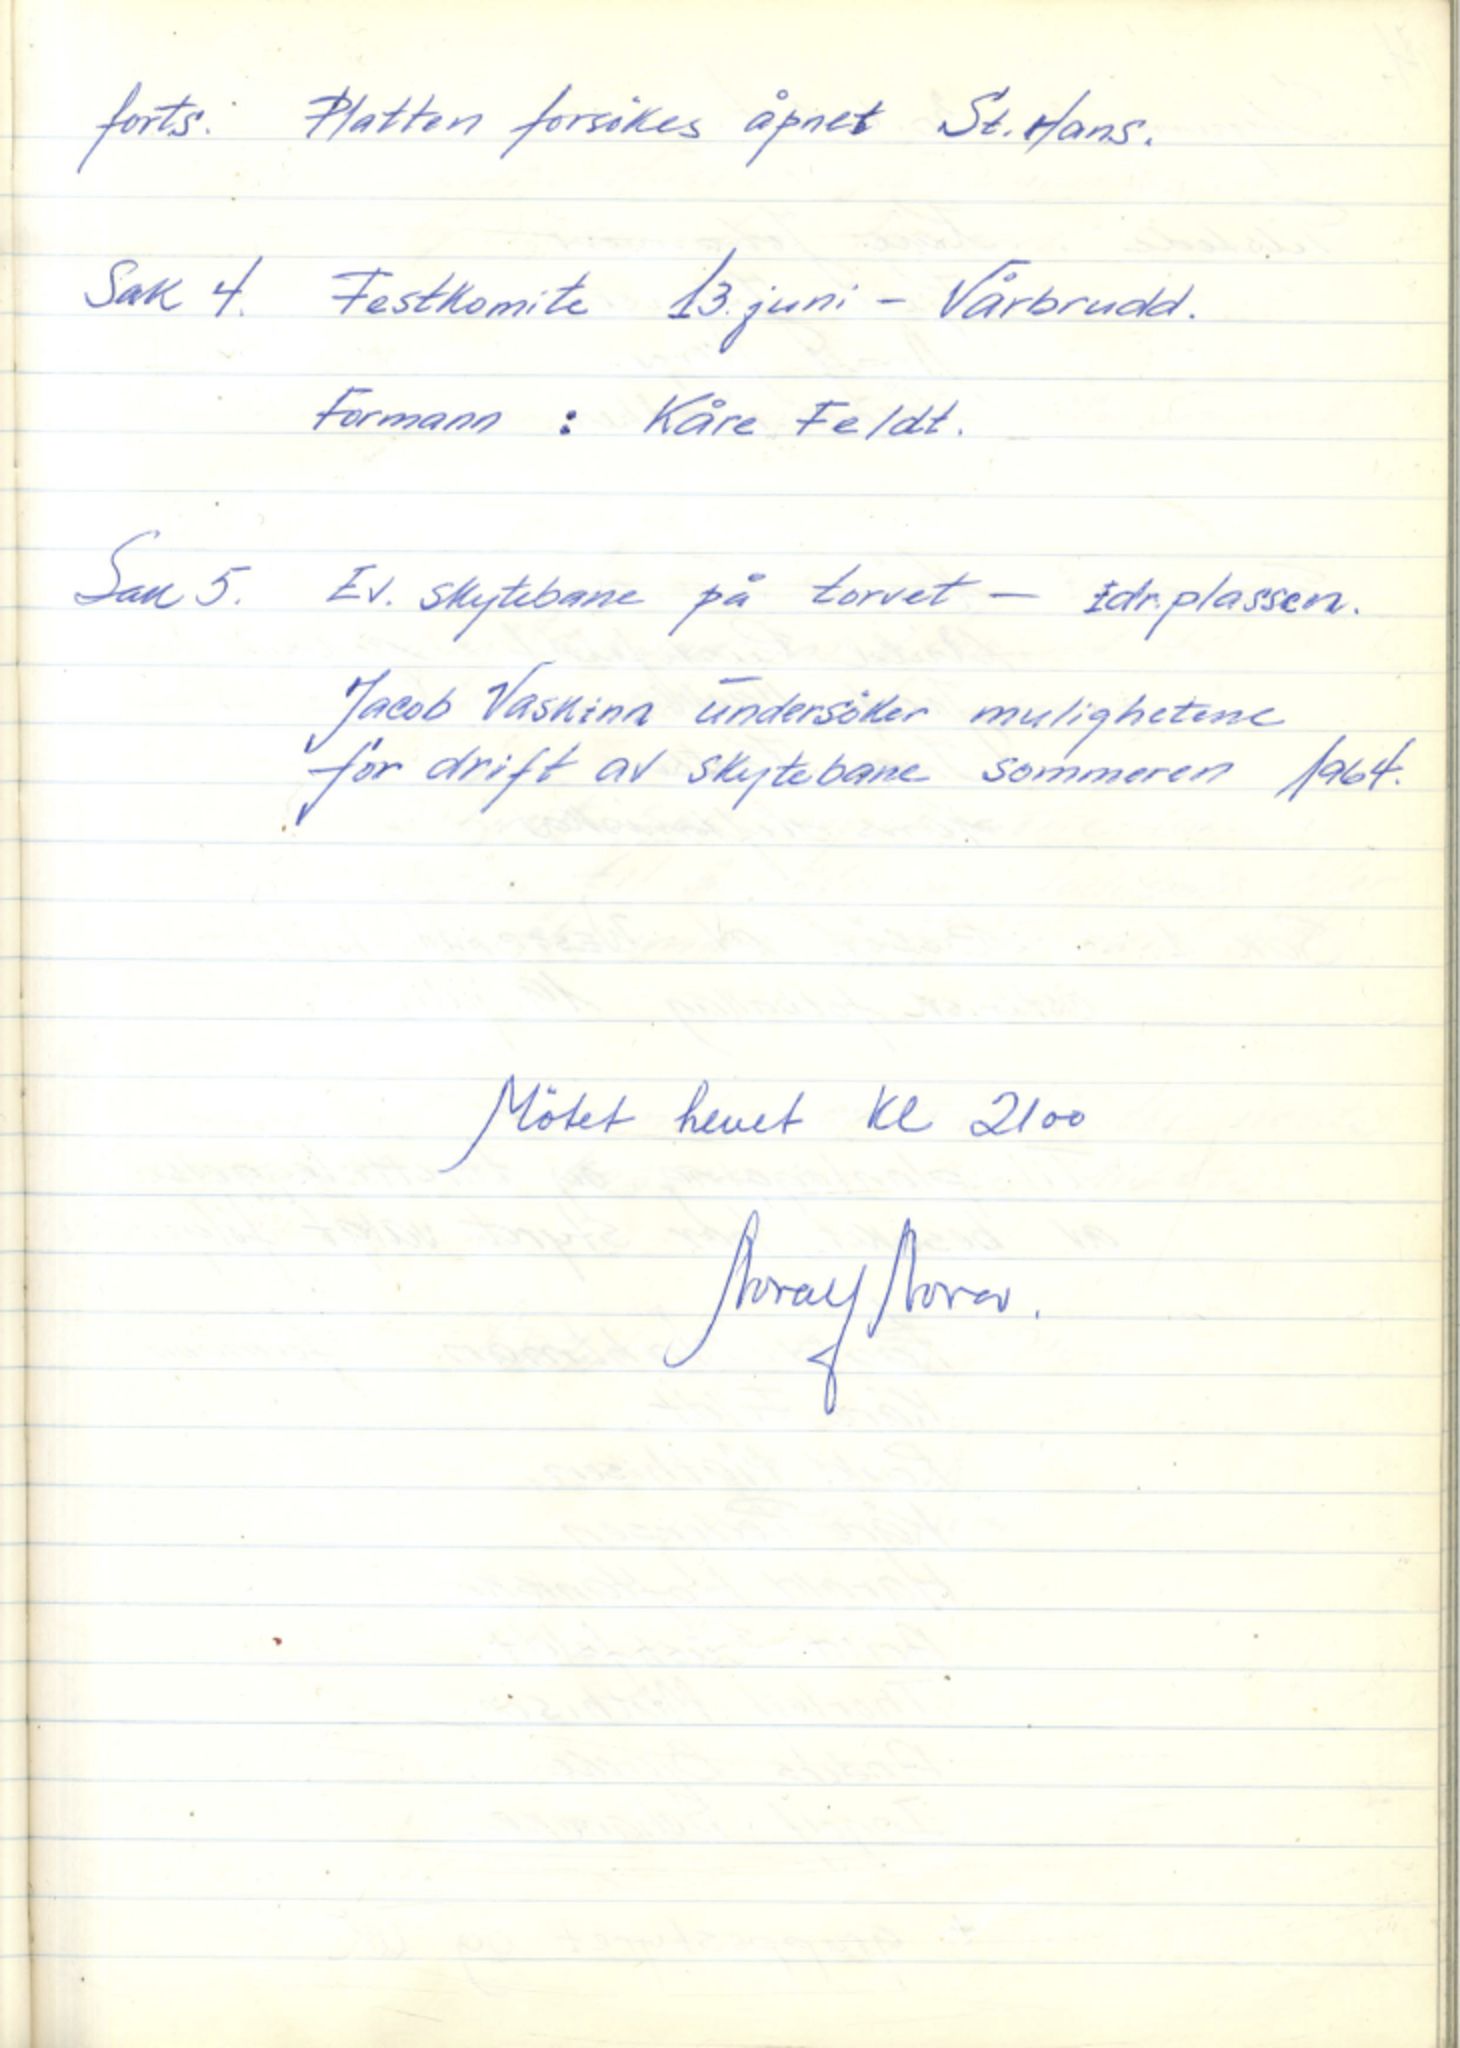 forts. Platten forsökes åpnet St. Hans.
Sak 4. Festkomite 13. juni - Vårbrudd.
Formann : Kåre Feldt.
Sak 5. Ev. skytebane på torvet - Idr.plassen.
Jacob Vaskinn undersöker mulighetene
for drift av skytebane sommeren 1964.
Mötet hevet kl 2100